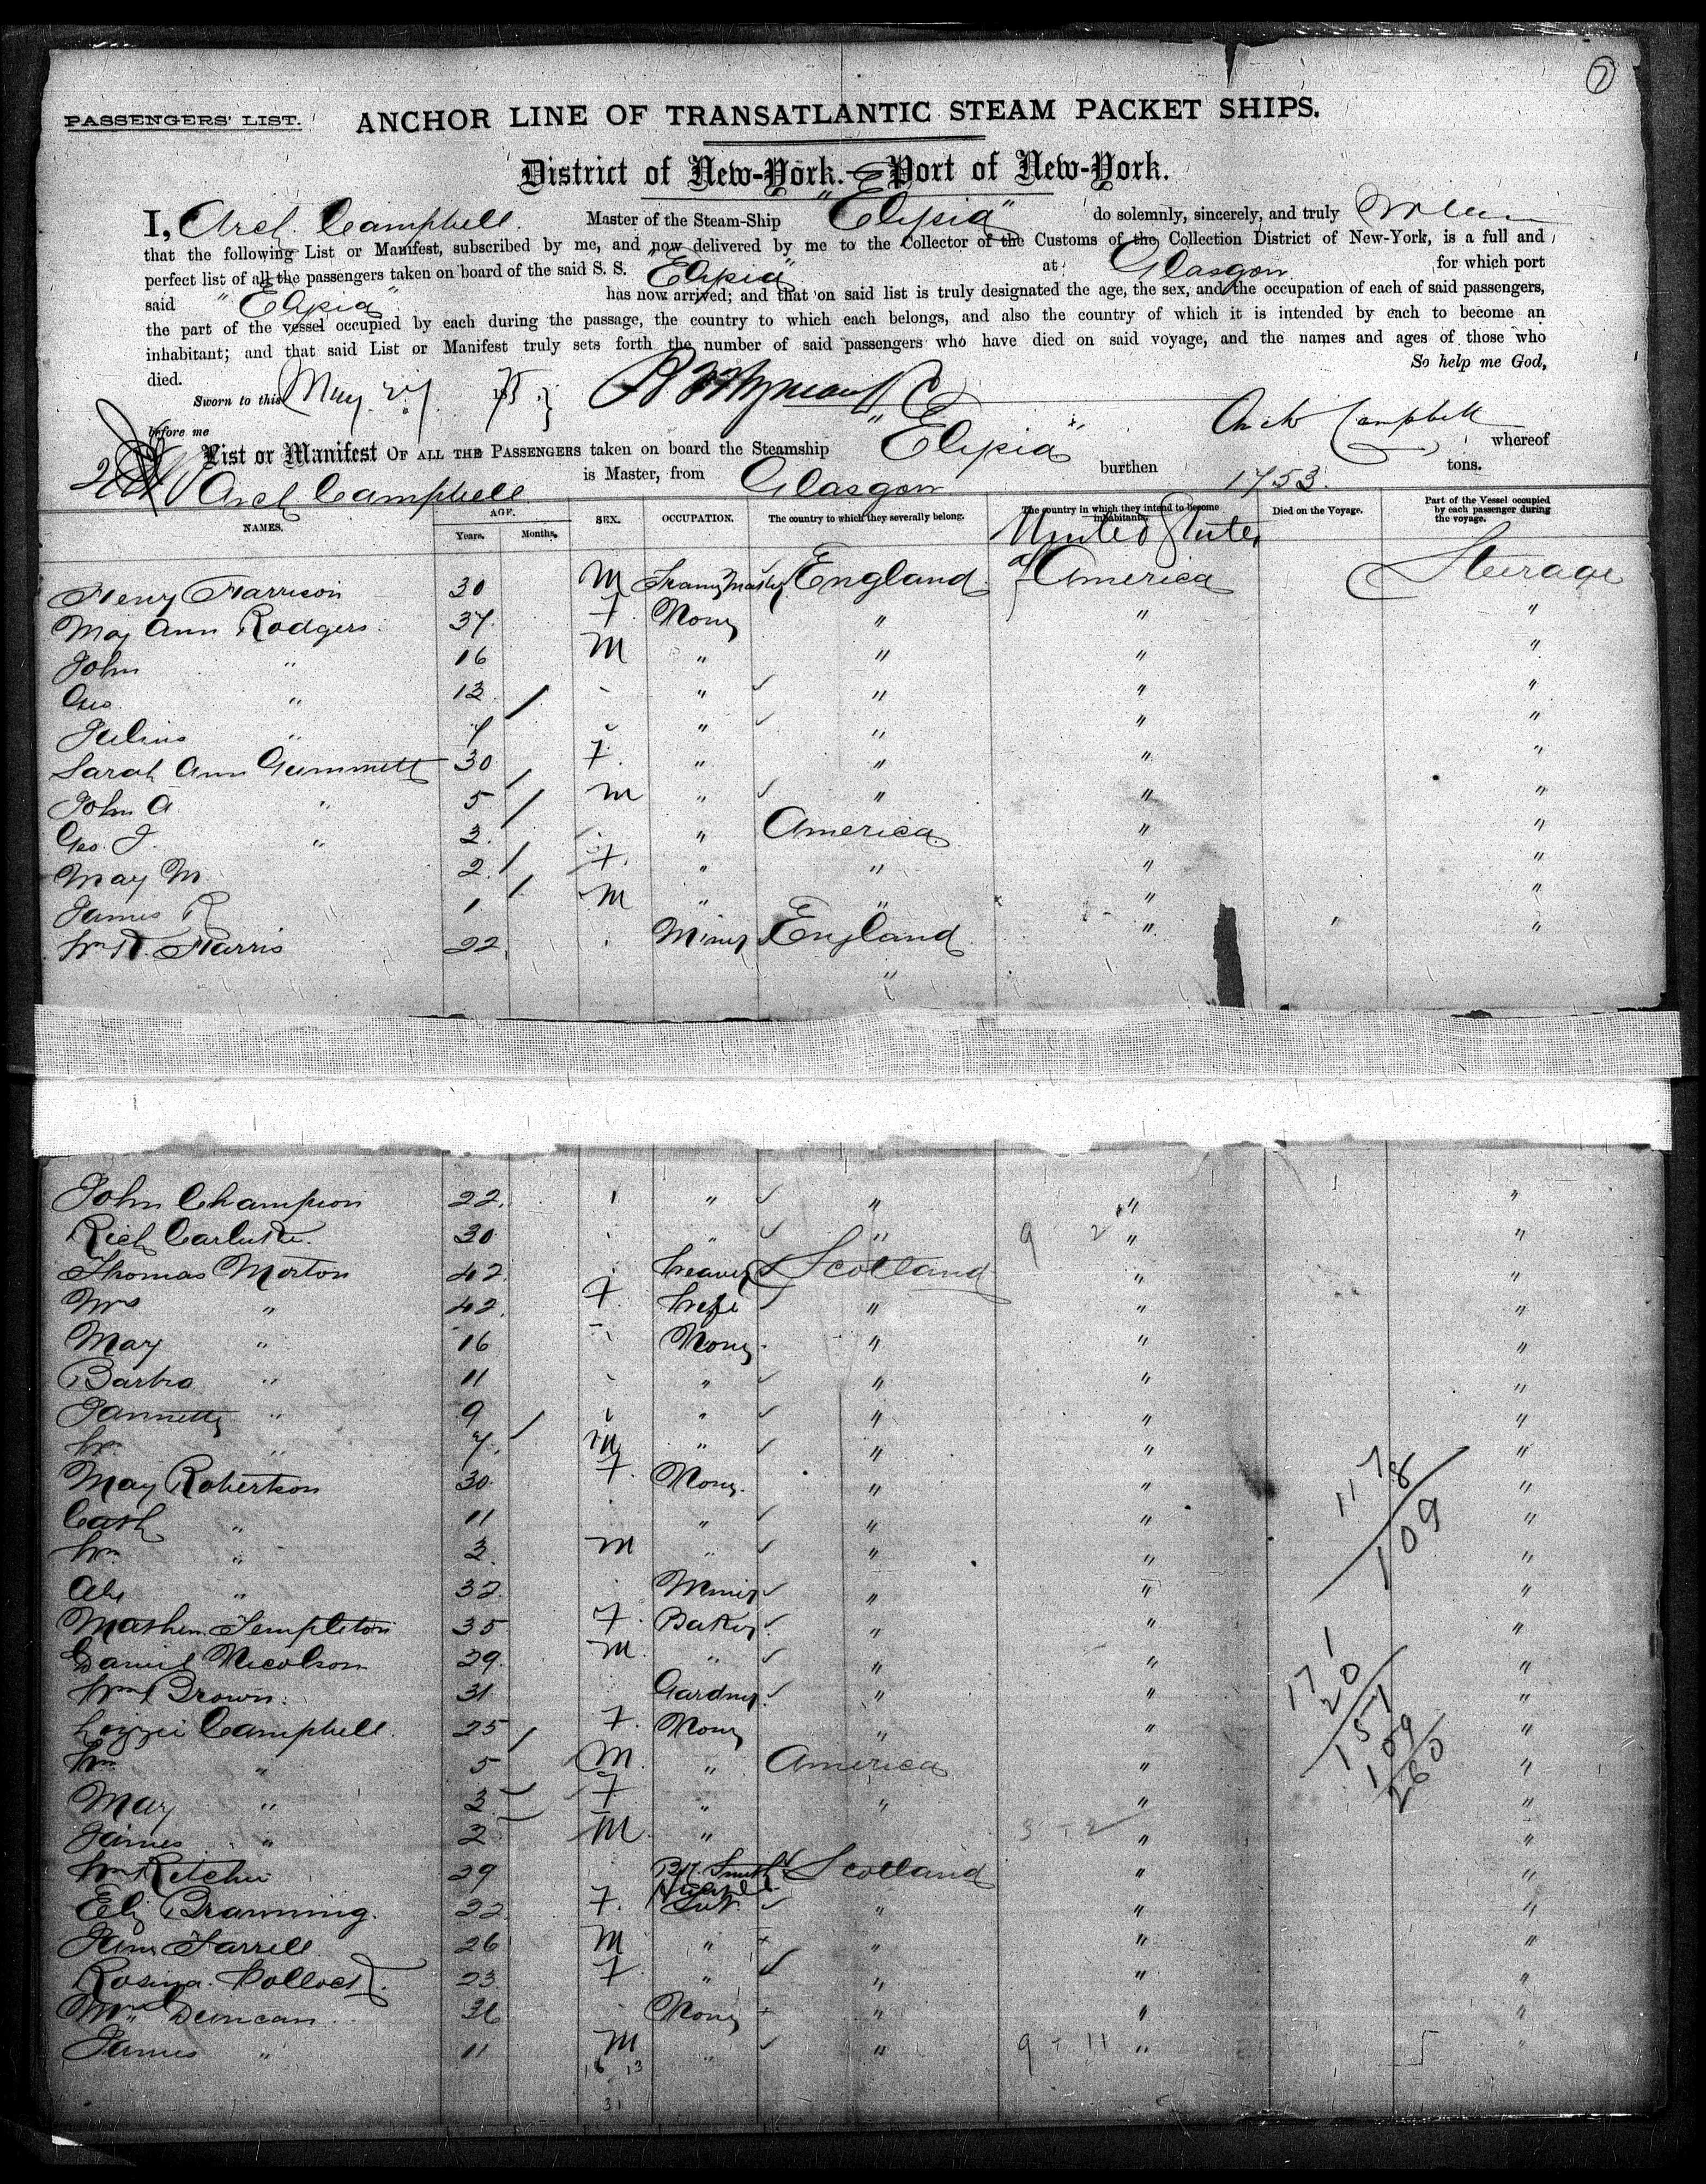 7
PASSENGERS' LIST. ANCHOR LINE OF TRANSATLANTIC STEAM PACKET SHIPS.
District of New-York.—Port of New-York.
I, Arch. Campbell. Master of the Steam-Ship "Elysia" do solemnly, sincerely, and truly
that the following List or Manifest, subscribed by me, and now delivered by me to the Collector of the Customs of the Collection District of New-York, is a full and
perfect list of all the passengers taken on board of the said S. S. "Elysia" at Glasgow. for which port
said "Elysia" has now arrived; and that on said list is truly designated the age, the sex, and the occupation of each of said passengers,
the part of the vessel occupied by each during the passage, the country to which each belongs, and also the country of which it is intended by each to become an
inhabitant; and that said List or Manifest truly sets forth the number of said passengers who have died on said voyage, and the names and ages of those who
died. So help me God,
Sworn to this May 27 1875 }
before me Arch Campbell
List or Manifest OF ALL THE PASSENGERS taken on board the Steamship "Elysia" whereof
Arch Campbell is Master, from Glasgow burthen 1753. tons.
NAMES. AGE. Years. Months. SEX. OCCUPATION. The country to which they severally belong. The country in which they intend to become inhabitants. Died on the Voyage. Part of the Vessel occupied by each passenger during the voyage.
Henry Harrison 30 M England United States of America Steerage
May Ann Rodgers 37 F None " " "
John " 16 M " " " "
Geo " 13 " " " "
Julius " 7 " " " "
Sarah Ann Gummett 30 F. " " " "
John A " 5 m " " " "
Geo. J. " 3. " America " "
May M 2. F. " " " "
James R 1. M " " " "
Wm H. Harris 22. Miner England " " "
"
John Champion 22. " " " "
Rich Carlisle. 30 " " 9 2 " "
Thomas Morton 42. Weaver Scotland " "
Mrs " 42. F. Wife " " "
May " 16 None " " "
Barbra " 11 " " " "
Jannett " 9 " " " "
Wm " 7. M " " " "
May Robertson 30. F. None. " " "
Cath " 11 " " " "
Wm " 3. M " " " "
Alx " 32 Miner " " "
Mathew Templeton 35 F. Baker " " "
Daniel Nicolson 29. M. " " " "
Wm Brown. 31 Gardner " " "
Lizzie Campbell. 25 F. None " " "
Wm " 5 M. " America " "
May " 3 F " " " "
James " 2 M. " " 3 + 2 " "
Wm Ritchie 29 Bk. Smith Scotland " "
Eliz Branning. 22. F. Servt. " " "
James Farrell 26 M " " " "
Rosina Pollock. 23 F " " " "
Mrs Duncan 36 None " " "
James " 11 M " " 9 + 11 " "
18 13
31
117 8
109
17 1
20
151
109
260